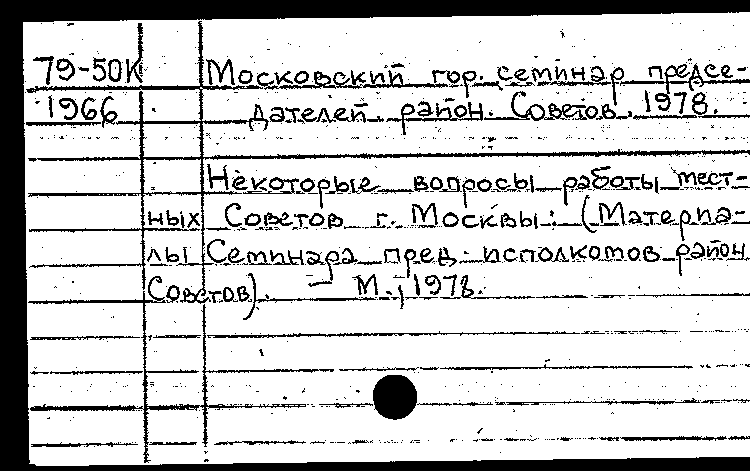 79-50К Московский гор. семинар предсе-
1966 дателей район. Советов, 1978.
Некоторые вопросы работы мест-
ных Советов г. Москвы: (Материа-
лы Семинара пред. исполкомов район
Советов). — М., 1978.